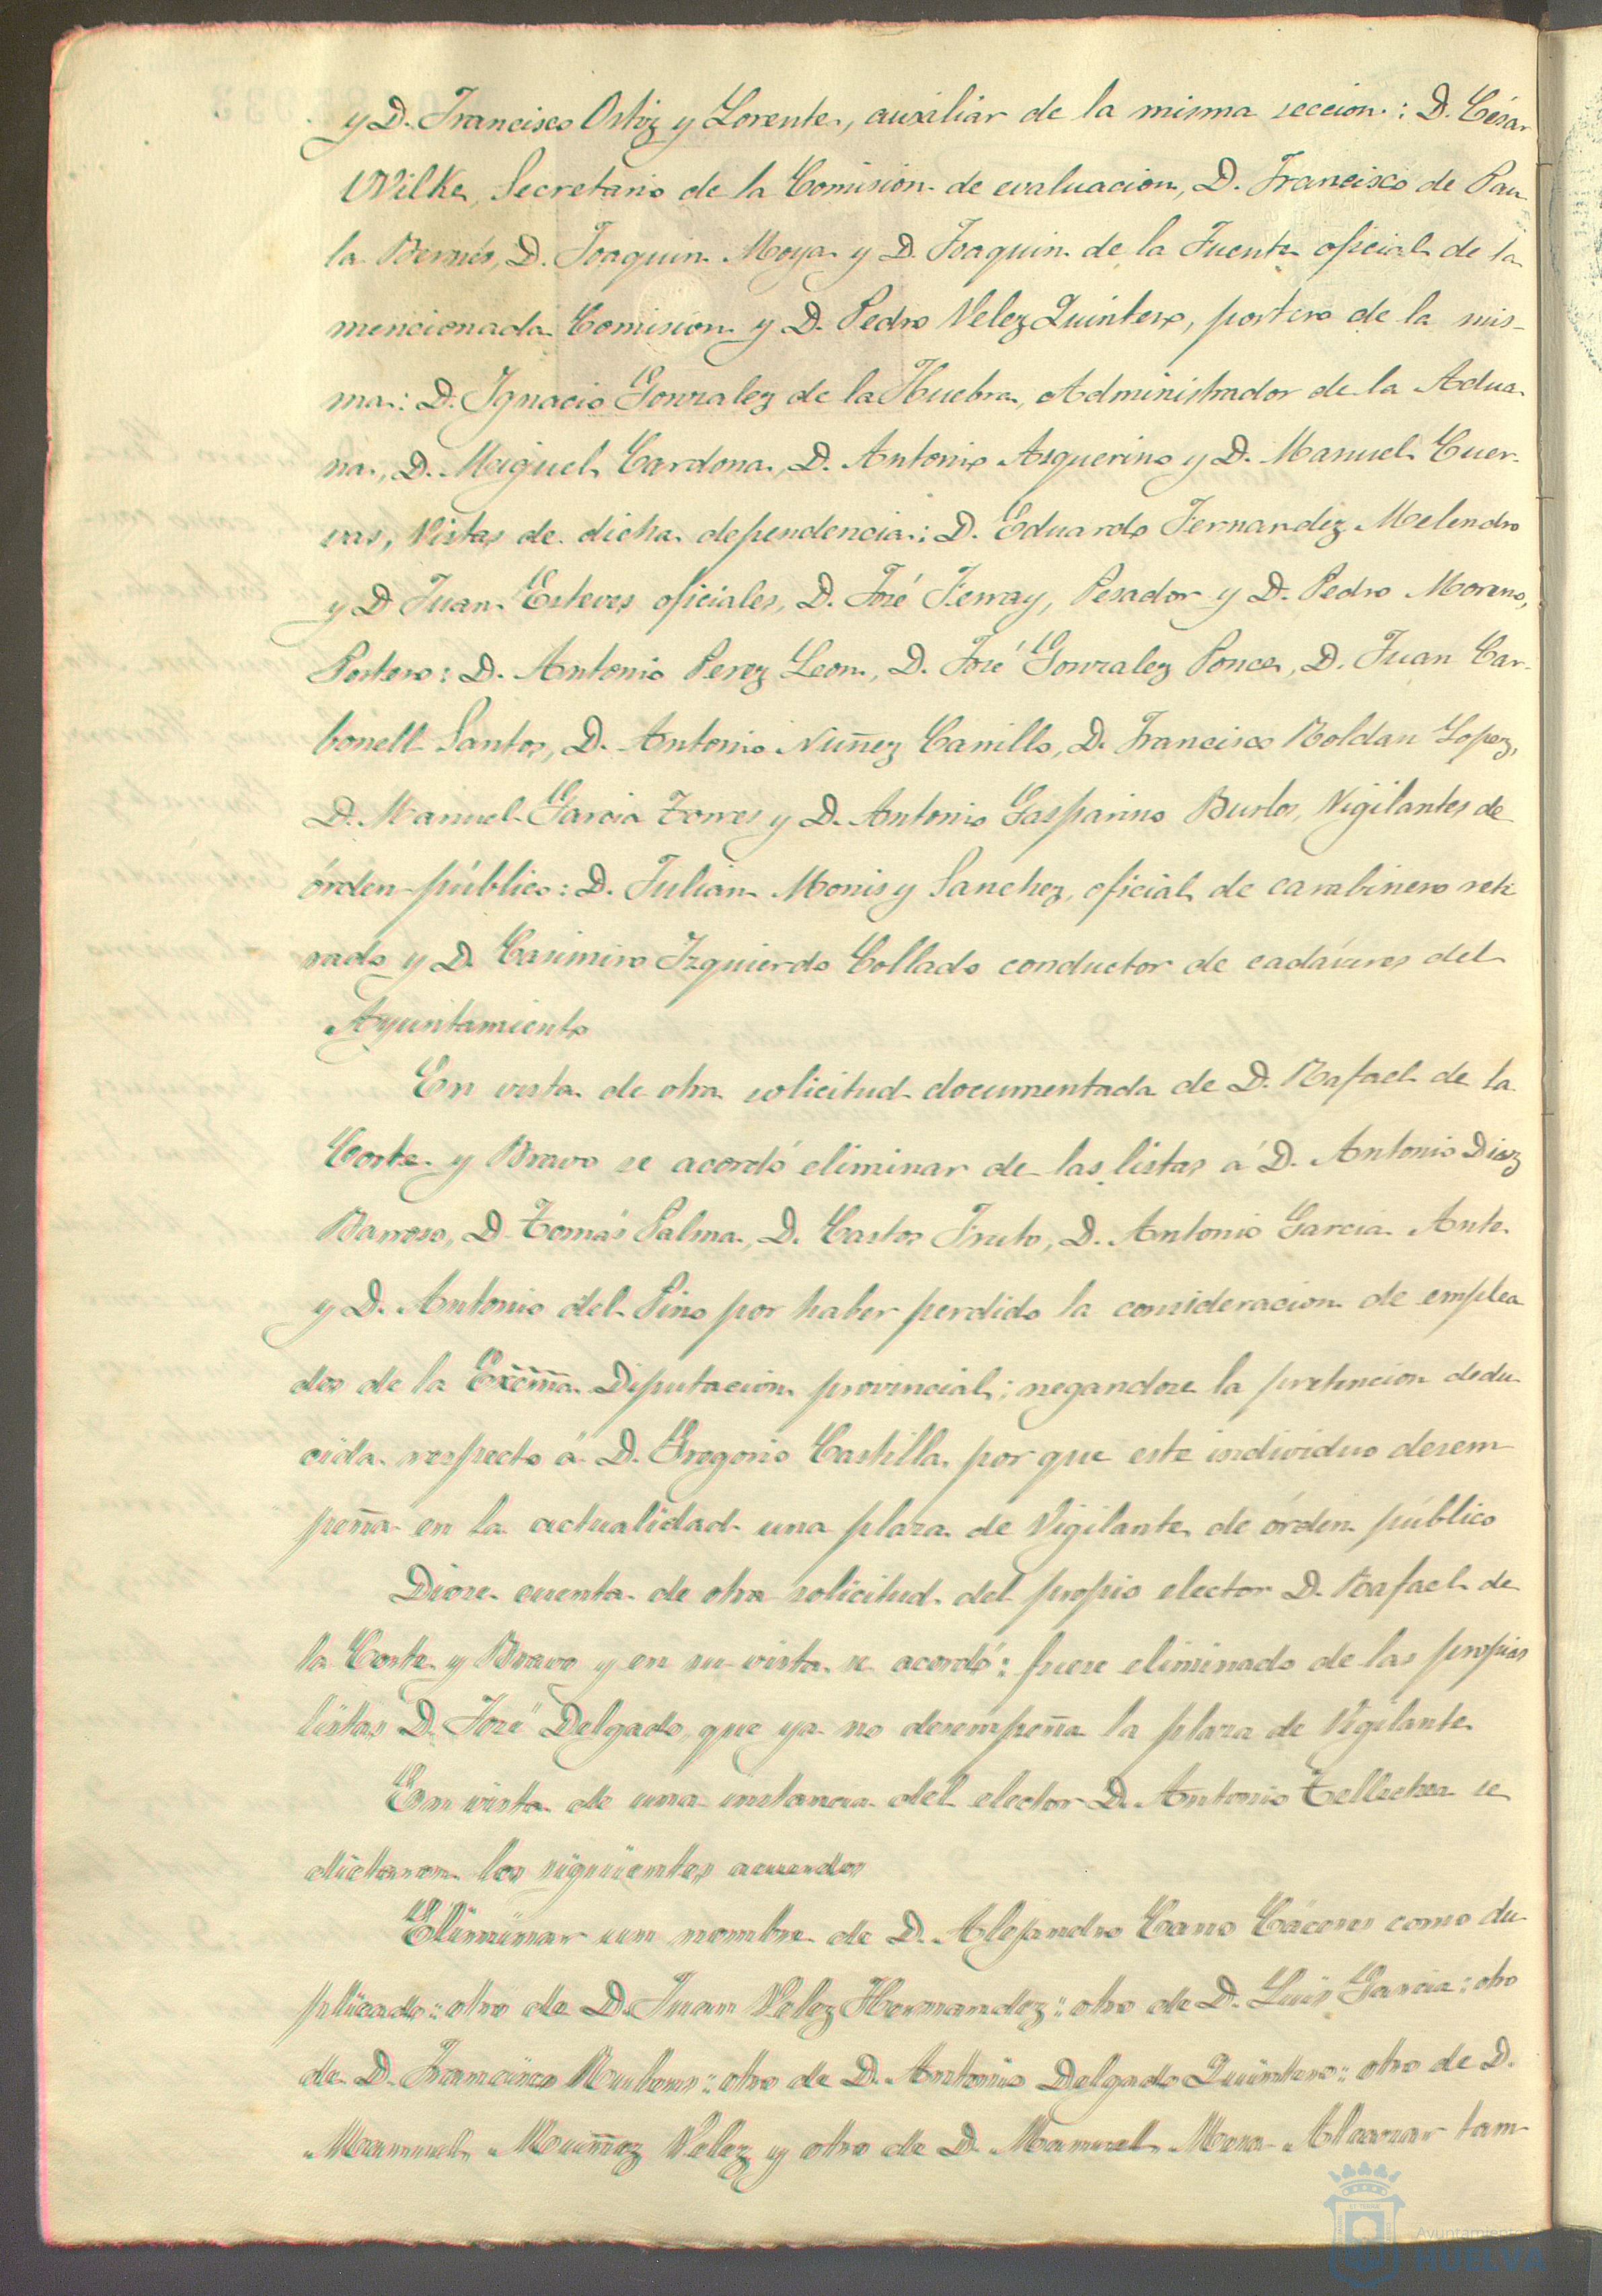 y D. Francisco Ortiz y Lorente, auxiliar de la misma seccion: D. César
Wilke, Secretario de la Comision de evaluacion, D. Francisco de Pau
la Bernés, D. Joaquin Moya y D. Joaquin de la Fuente oficial de la
mencionada Comision y D. Pedro Velez Quintero, portero de la mis-
ma: D. Ignacio Gonzalez de la Huebra, Administrador de la Adua
na, D. Miguel Cardona, D. Antonio Asquerino y D. Manuel Cuer-
vas, Vistas de dicha dependencia: D. Eduardo Fernandez Melendro
y D Juan Esteves oficiales, D. José Ferray, Pesador y D. Pedro Moreno,
Portero: D. Antonio Perez Leon, D. José Gonzalez Ponce, D. Juan Car-
bonell Santos, D. Antonio Nuñez Canillo, D. Francisco Roldan Lopez,
D. Manuel Garcia Torres y D. Antonio Gasparino Burlos, Vigilantes de
órden público: D. Julian Monis y Sanchez, oficial de carabinero reti
rado y D. Casimiro Izquierdo Collado conductor de cadáveres del
Ayuntamiento
En vista de otra solicitud documentada de D. Rafael de la
Corte y Bravo se acordó eliminar de las listas á D. Antonio Diaz
Barroso, D. Tomás Palma, D. Castor Fruto, D. Antonio Garcia Ante
y D. Antonio del Pino por haber perdido la consideracion de emplea
dos de la Excma. Diputacion provincial; negandose la pretencion dedu
cida respecto á D. Gregorio Castilla por que este individuo desem
peña en la actualidad una plaza de Vigilante de órden público
Diose cuenta de otra solicitud del propio elector D. Rafael de
la Corte y Bravo y en su vista se acordó: fuese eliminado de las propias
listas D. José Delgado, que ya no desempeña la plaza de Vigilante
En vista de una instancia del elector D. Antonio Tellechea se
dictaron los siguientes acuerdos
Eliminar un nombre de D. Alejandro Cano Cáceres como du
plicado: otro de D. Juan Velez Hernandez: otro de D. Luis Garcia: otro
de D. Francisco: otro de D. Antonio Delgado Quintero: otro de D.
Manuel Muñoz Velez y otro de D. Manuel Mora Alcazar tam-
Ayuntamie
HUELVA